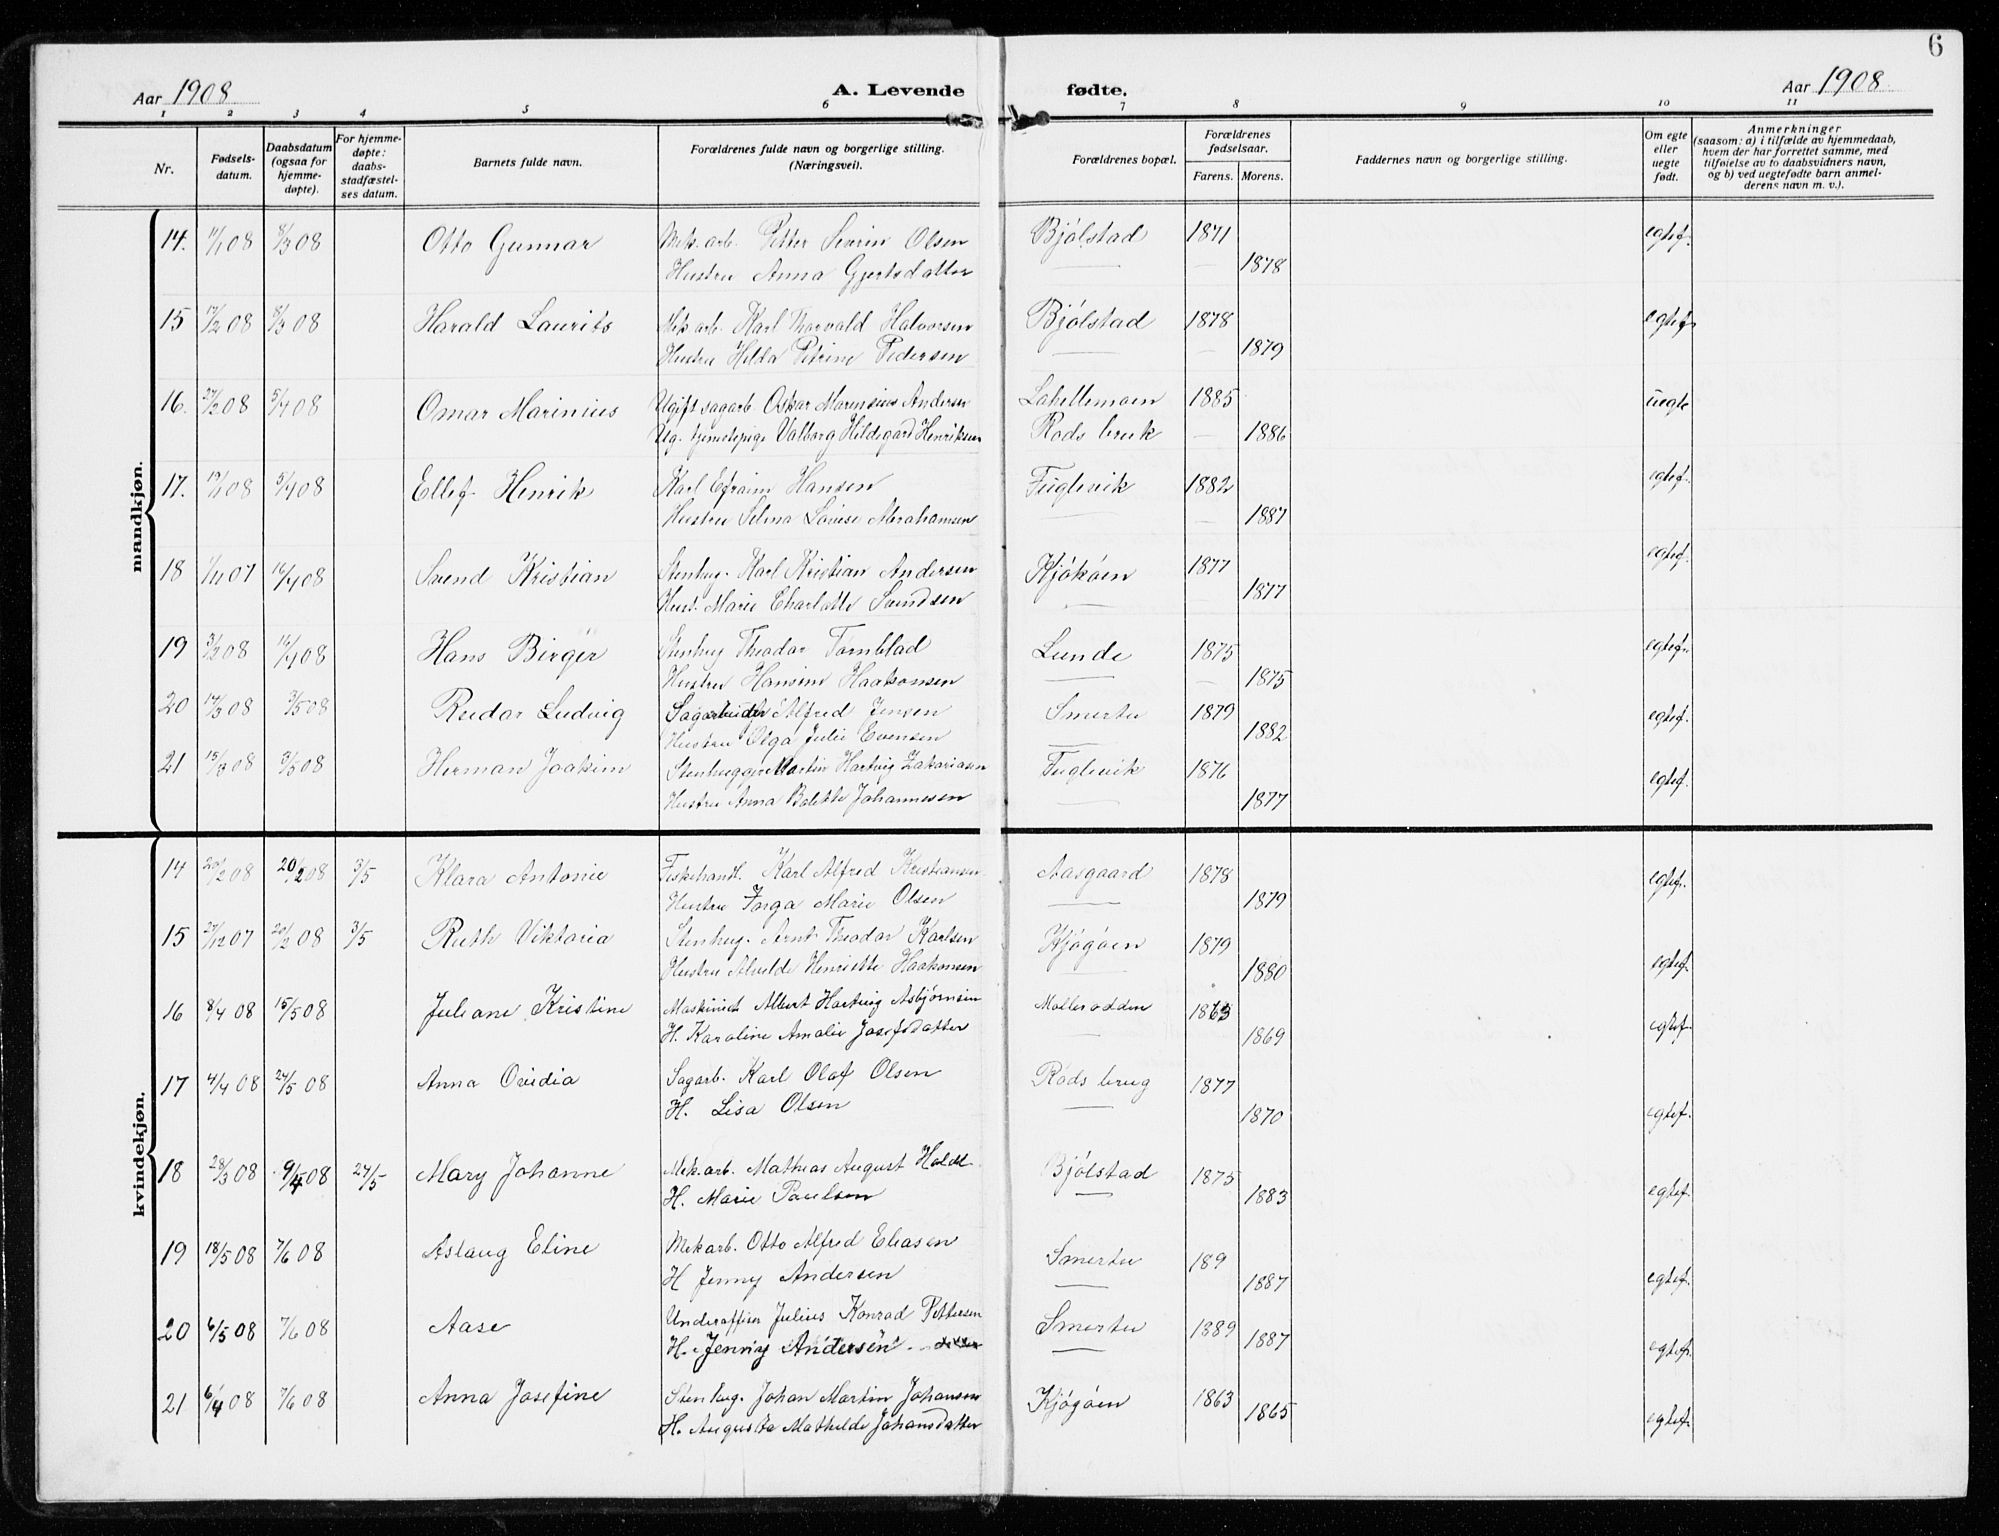 6
Aar 1908 A. Levende fødte. Aar 1908
1 2 3 4 5 6 7 8 9 10 11
Nr. Fødsels-datum. Daabsdatum (ogsaa for hjemme-døpte). For hjemme-døpte: daabs-stadfæstel-ses datum. Barnets fulde navn. Forældrenes fulde navn og borgerlige stilling. (Næringsvei). Forældrenes bopæl. Forældrenes fødselsaar. Farens. Morens. Faddernes navn og borgerlige stilling. Om egte eller uegte født. Anmerkninger (saasom: a) i tilfælde av hjemmedaab, hvem der har forrettet samme, med tilføielse av to daabsvidners navn, og b) ved uegtefødte barn anmel-derens navn m. v.).
mandkjøn.
14. 11/1 08 8/3 08 Otto Gunnar Mek. arb. Petter Severin Olsen Bjølstad 1871 egtef.
Hustru Anna Gjertsdatter — 1878
15 17/2 08 8/3 08 Harald Laurits Mek. arb. Karl Thorvald Halvorsen Bjølstad 1878 egtef.
Hustru Hilda Petrine Pedersen — 1879
16. 27/2 08 5/4 08 Omar Marinius Ugift sagarb. Oskar Marensius Andersen 1885 uegte
Ug. tjenestepige Valborg Hildegard Henriksen Rods bruk — 1886
17. 19/1 08 5/4 08 Ellef Henrik Karl Efraim Hansen Fuglevik 1882 egtef.
Hustru Selma Lovise Abrahamsen — 1887
18 1/11 07 16/4 08 Svend Kristian Stenhug. Karl Kristian Andersen Kjøkøen 1877 egtef.
Hust. Marie Charlotte Svendsen — 1877
19 3/2 08 16/4 08 Hans Birger Stenhug Theodor Tornblad Lunde 1875 egtef.
Hustru Hansine Haakonsen — 1875
20 14/3 08 3/5 08 Reidar Ludvig Sagarbeider Alfred Jensen Smertu 1879 egtef.
Hustru Olga Julie Evensen 1882
21 15/3 08 3/5 08 Herman Joakim Stenhugger Martin Hartvig Zakariasen Fuglevik 1876 egtef.
Hustru Anna Bolette Johannesen — 1877
kvindekjøn.
14 20/2 08 20/2 08 3/5 Klara Antonie Fiskehandl. Karl Alfred Kristiansen Aasgaard 1878 egtef.
Hustru Inga Marie Olsen — 1879
15 27/12 07 20/2 08 3/5 Ruth Viktoria Stenhug. Arnt Theodor Karlsen Kjøgøen 1879
Hustru Alvilde Henriette Haakonsen — 1880 egtef.
16 8/4 08 15/5 08 Juliane Kristine Maskinist Albert Hartvig Asbjørnsen Møllerodden 1863
H. Karoline Amalie Josefsdatter 1869 egtef.
17 4/4 08 24/5 08 Anna Ovidia Sagarb. Karl Olaf Olsen Rods brug 1877
H. Lisa Olsen — 1870 egtef.
18 28/3 08 9/4 08 24/5 Mary Johanne Mek. arb. Mathias August Holdt Bjølstad 1875
H. Marie Paulsen — 1883 egtef.
19 18/5 08 7/6 08 Aslaug Eline Mek arb. Otto Alfred Eliasen Smertu 189
H Jenny Andersen — 1887 egtef.
20 6/5 08 7/6 08 Aase Underofficer Julius Konrad Pettersen Smertu 1889
H. Jenny Andersen — 1887 egtef.
21 6/4 08 7/6 08 Anna Josefine Stenhug. Johan Martin Johansen Kjøgøen 1863
H. Augusta Mathilde Johansdatter 1865 egtef.